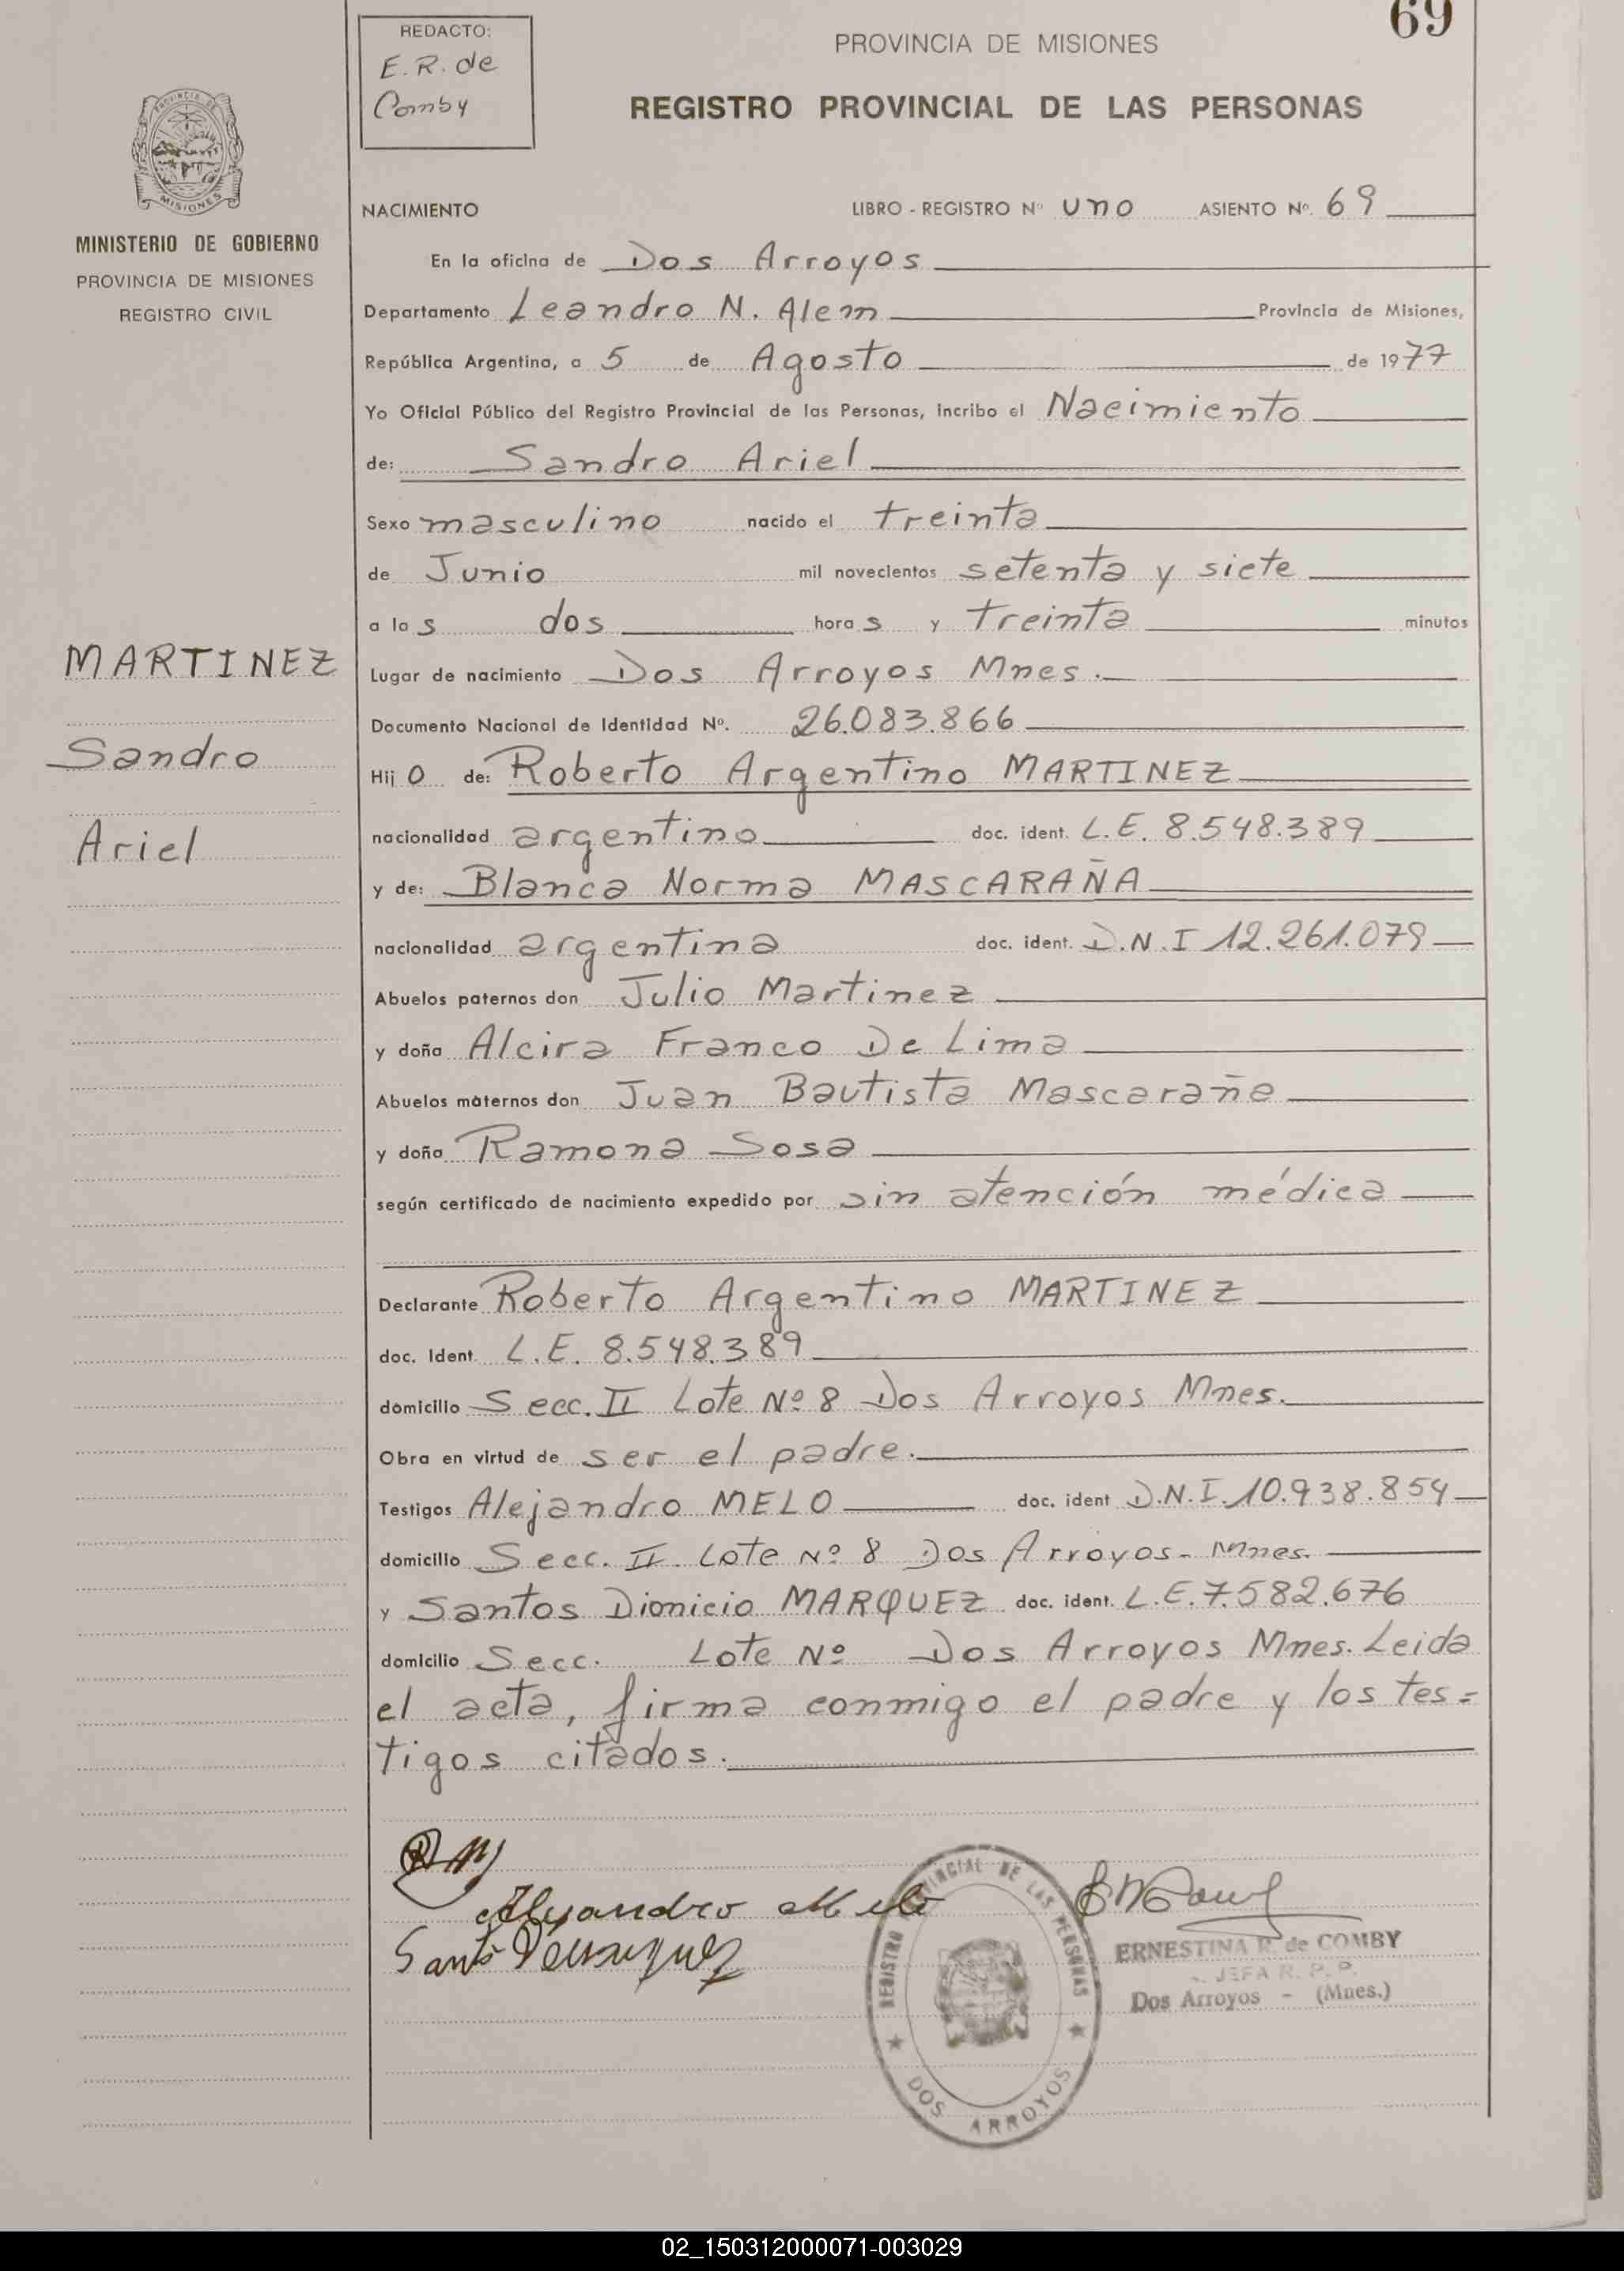 69
REDACTO:
E.R. de
Comby
PROVINCIA DE MISIONES
REGISTRO PROVINCIAL DE LAS PERSONAS
PROVINCIA DE
MISIONES
MINISTERIO DE GOBIERNO
PROVINCIA DE MISIONES
REGISTRO CIVIL
NACIMIENTO LIBRO - REGISTRO Nº uno ASIENTO Nº. 69
En la oficina de Dos Arroyos
Departamento Leandro N. Alem Provincia de Misiones,
República Argentina, a 5 de Agosto de 1977
Yo Oficial Público del Registro Provincial de las Personas, incribo el Nacimiento
de: Sandro Ariel
Sexo masculino nacido el treinta
de Junio mil novecientos setenta y siete
a las dos horas y treinta minutos
MARTINEZ
Sandro
Ariel
Lugar de nacimiento Dos Arroyos Mnes.
Documento Nacional de Identidad Nº. 26.083.866
Hijo de: Roberto Argentino MARTINEZ
nacionalidad argentino doc. ident. L.E. 8.548.389
y de: Blanca Norma MASCARAÑA
nacionalidad argentina doc. ident. D.N.I 12.261.079
Abuelos paternos don Julio Martinez
y doña Alcira Franco De Lima
Abuelos maternos don Juan Bautista Mascaraña
y doña Ramona Sosa
según certificado de nacimiento expedido por sin atención médica
Declarante Roberto Argentino MARTINEZ
doc. Ident. L.E. 8.548.389
domicilio Secc. II Lote Nº 8 Dos Arroyos Mnes.
Obra en virtud de ser el padre.
Testigos Alejandro MELO doc. ident D.N.I. 10.938.854
domicilio Secc. II. Lote Nº 8 Dos Arroyos - Mnes.
y Santos Dionicio MARQUEZ doc. ident. L.E. 7.582.676
domicilio Secc. Lote Nº Dos Arroyos Mnes. Leida
el acta, firma conmigo el padre y los tes=
tigos citados.
Alejandro Melo
REGISTRO PROVINCIAL DE LAS PERSONAS
DOS ARROYOS
ERNESTINA R. de COMBY
JEFA R. P. P.
Dos Arroyos - (Mnes.)
02_150312000071-003029